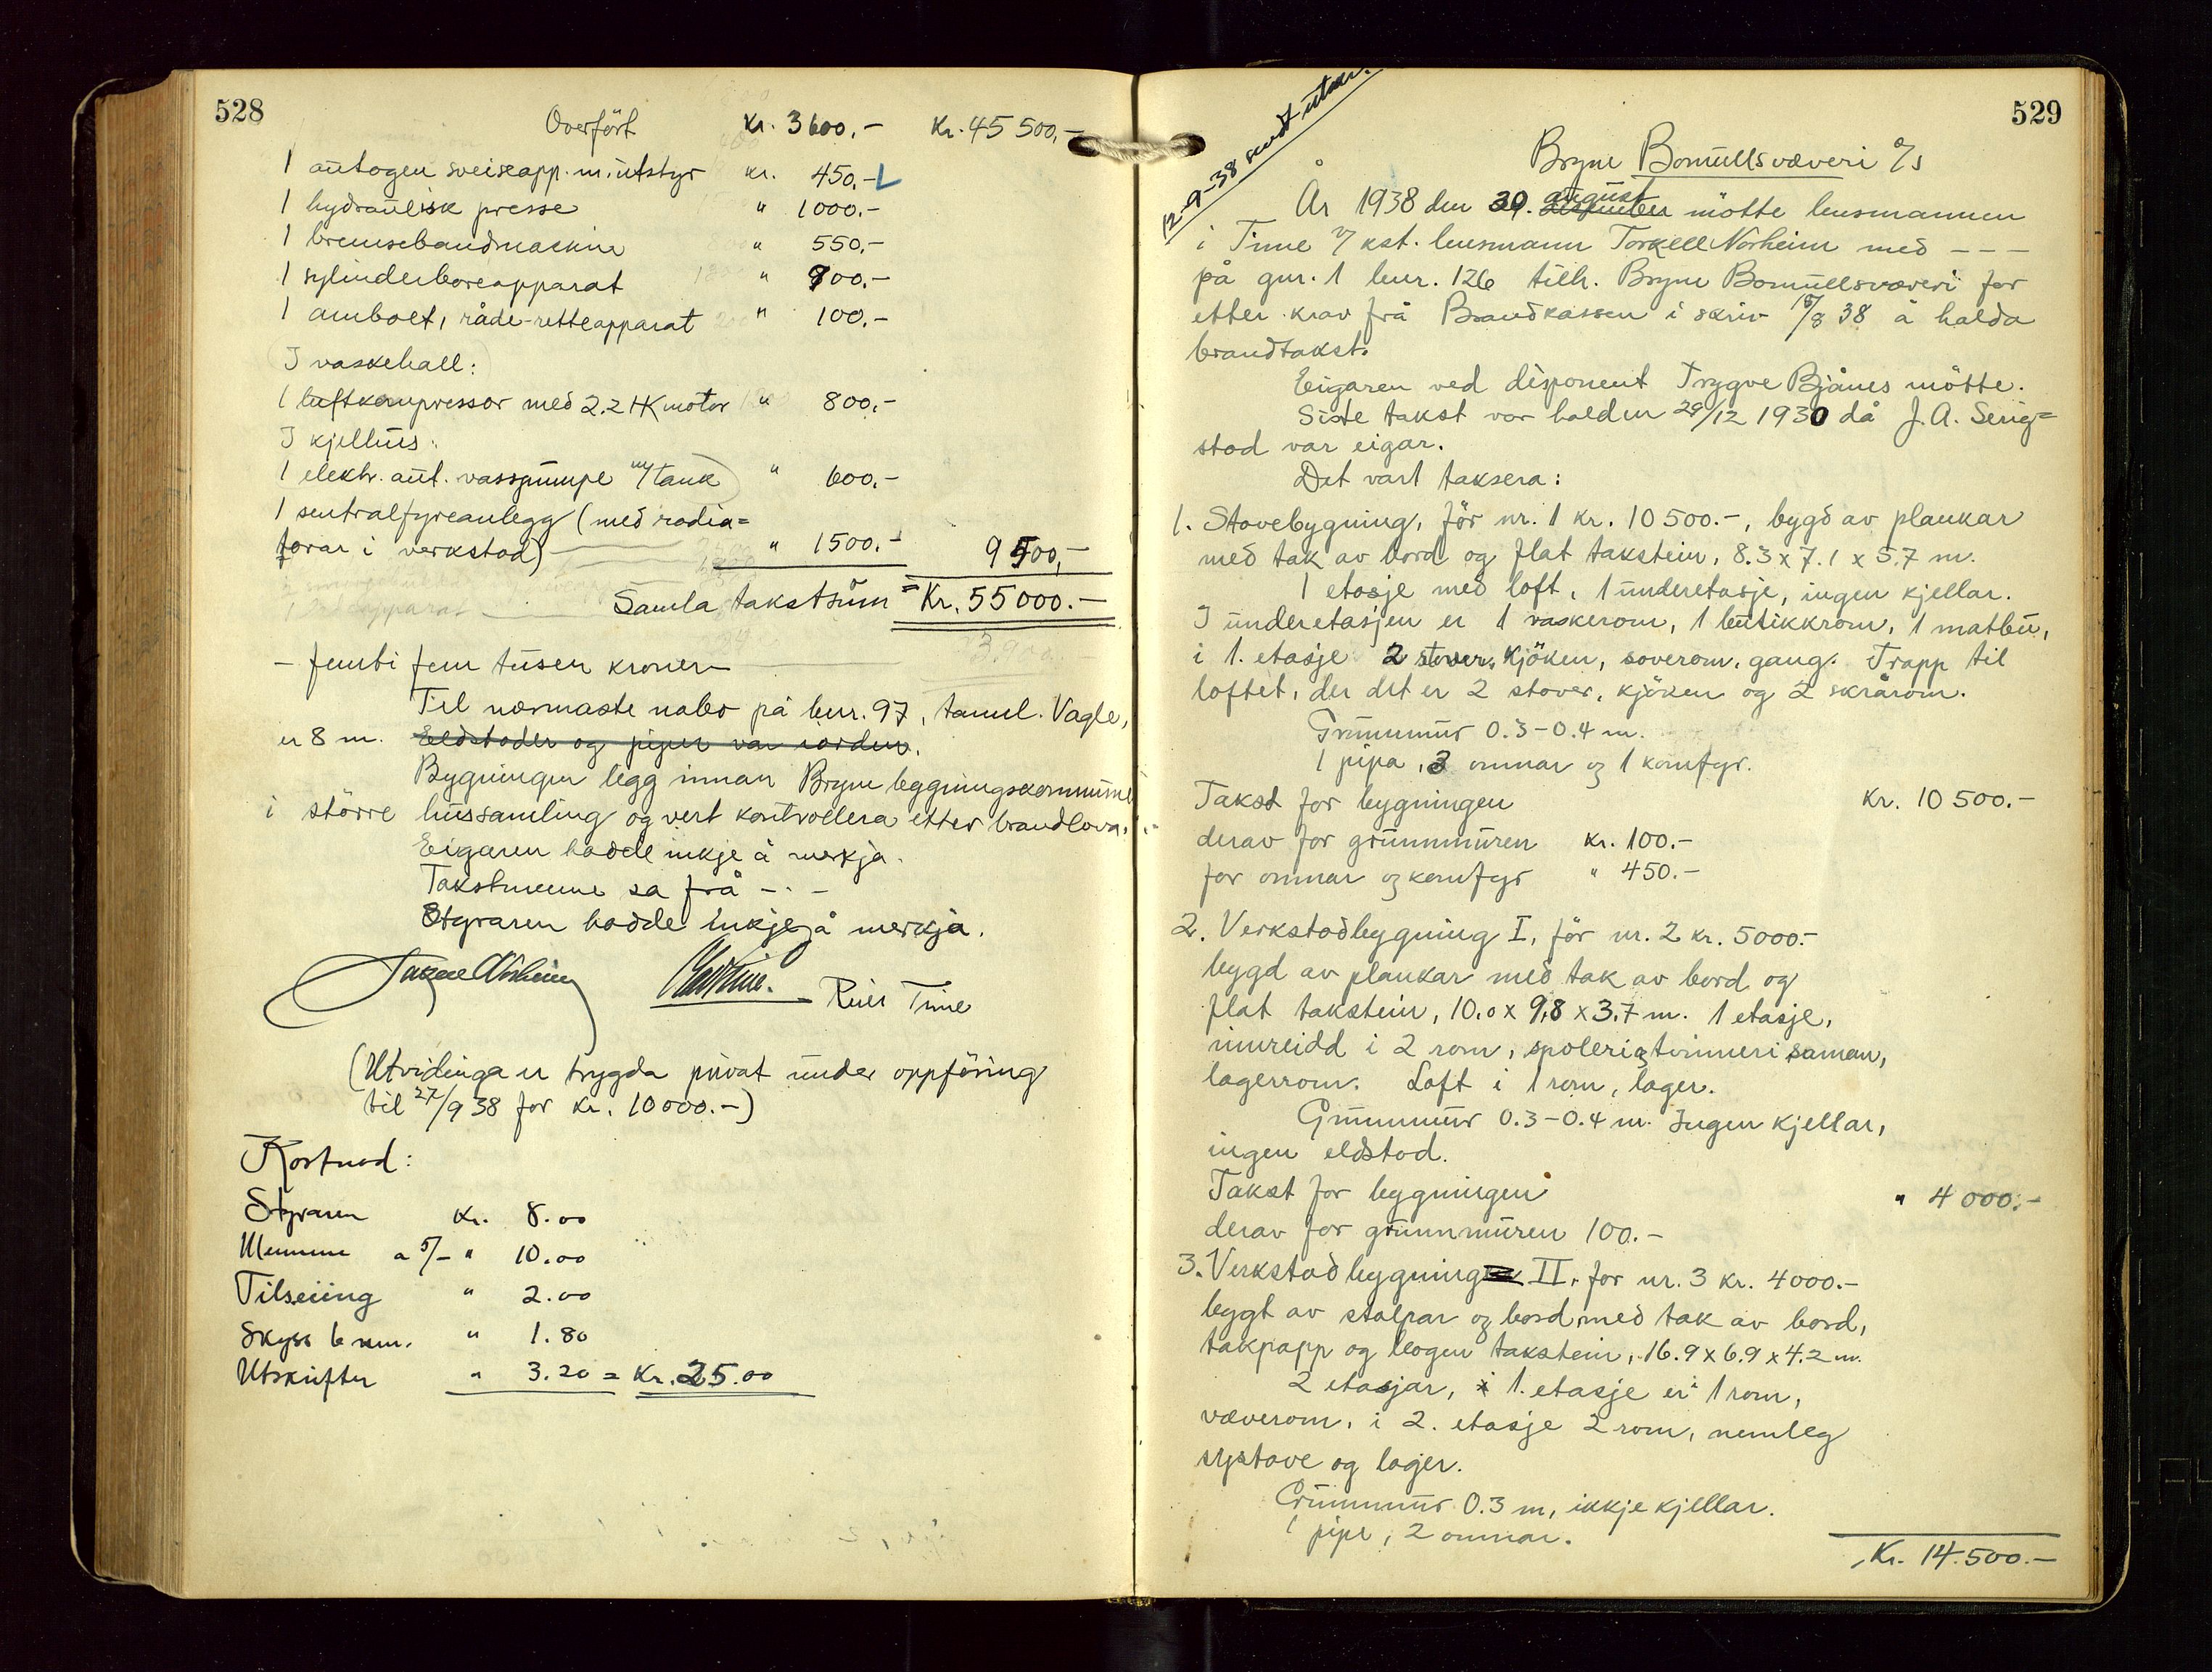 528
Overført kr. 3600,- Kr. 45 500,-
1 autogen sveiseapp. m. utstyr kr. 450,-
1 hydraulisk presse " 1000.-
1 bremsebandmaskin " 550,-
1 sylinderboreapparat " 900.-
1 ambolt, råde-retteapparat " 100.-
I vaskehall:
1 luftkompressor med 2.2 HK motor " 800,-
I kjellhus:
1 elektr. aut. vasspumpe m/tank " 600,-
1 sentralfyreanlegg (med radia=
torar i verkstad) " 1500.- 9500,-
Samla takstsum = Kr. 55 000.-
- femti fem tusen kroner -
Til nærmaste nabo på bnr. 97, tannl. Vagle,
er 8 m. Eldstader og piper var iorden.
Bygningen ligg innan Bryne bygningskommune
i større hussamling og vert kontrollera etter brandlova.
Eigaren hadde inkje å merkja.
Takstmenne sa frå - . -
Styraren hadde inkje å merkja.
Torkell Norheim Reier Time
(Utvidinga er trygda privat under oppføring
til 27/9 38 for kr. 10 000.-)
Kostnad:
Styraren Kr. 8.00
Mennene a 5/- " 10.00
Tilseiing " 2.00
Skyss 6 km. " 1.80
Utskrifter " 3.20 = Kr. 25.00
529
12-9-38 sendt utskr.
Bryne Bomullsvæveri A/S
År 1938 den 30. august møtte lensmannen
i Time v/ kst. lensmann Torkell Norheim med - - -
på gnr. 1 bnr. 126 tilh. Bryne Bomullsvæveri for
etter krav frå Brandkassen i skriv 15/8 38 å halda
brandtakst.
Eigaren ved disponent Trygve Bjånes møtte.
Siste takst var halden 29/12 1930 då J. A. Serig=
stad var eigar.
Det vart taksera:
1. Stovebygning, før nr. 1 kr. 10 500.-, bygd av plankar
med tak av bord og flat takstein, 8.3 x 7.1 x 5.7 m.
1 etasje med loft, 1 underetasje, ingen kjellar.
I underetasjen er 1 vaskerom, 1 butikkrom, 1 matbu,
i 1. etasje 2 stover, kjøken, soverom, gang. Trapp til
loftet, der det er 2 stover, kjøken og 2 skrårom.
Grunnmur 0.3-0.4 m.
1 pipa, 3 omnar og 1 komfyr.
Takst for bygningen Kr. 10 500.-
derav for grunnmuren kr. 100.-
for omnar og komfyr " 450.-
2. Verkstadbygning I, før nr. 2 kr. 5000.-
bygd av plankar med tak av bord og
flat takstein, 10.0 x 9.8 x 3.7 m. 1 etasje,
innreidd i 2 rom, spoleri og tvinneri saman,
lagerrom. Loft i 1 rom, lager.
Grunnmur 0.3-0.4 m. Ingen kjellar,
ingen eldstad.
Takst for bygningen " 4 000.-
derav for grunnmuren 100.-
3. Verkstadbygning II, for nr. 3 kr. 4000.-
bygt av stolpar og bord med tak av bord,
takpapp og bogen takstein, 16.9 x 6.9 x 4.2 m.
2 etasjar, i 1. etasje er 1 rom,
væverom, i 2. etasje 2 rom, nemleg
systove og lager.
Grunnmur 0.3 m, ikkje kjellar.
1 pipe, 2 omnar.
Kr. 14.500.-